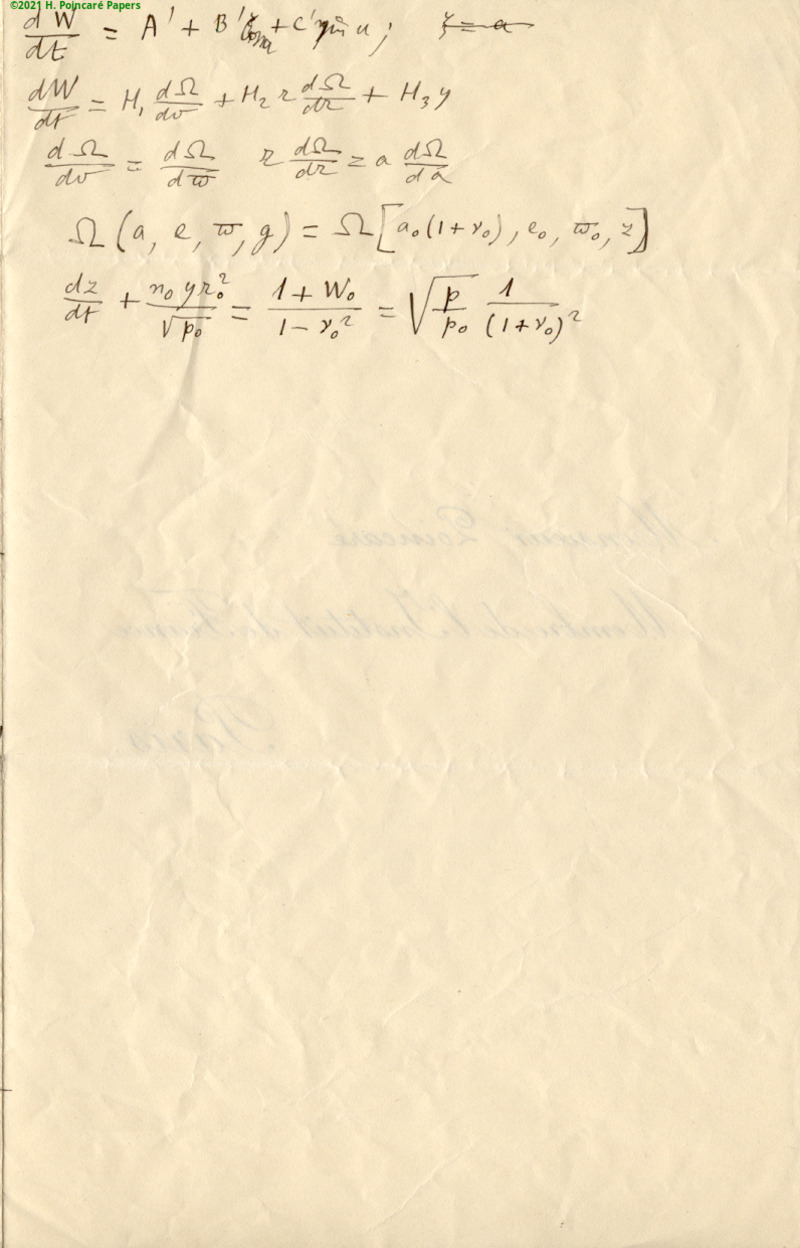 ©2021 H. Poincaré Papers
dW/dt = A' + B' cos u + C' sin u ; ξ = a
dW/dt = H₁ dΩ/dv + H₂ r dΩ/dr + H₃ y
dΩ/dv = dΩ/dϖ r dΩ/dr = a dΩ/da
Ω (a, e, ϖ, g) = Ω [a₀(1 + ν₀), e₀, ϖ₀, z]
dz/dt + n₀ y r₀²/√p₀ = (1 + W₀)/(1 − ν₀²) = √(p/p₀) 1/(1 + ν₀)²
Monsieur Poincaré
Membre de l'Institut de France
Paris